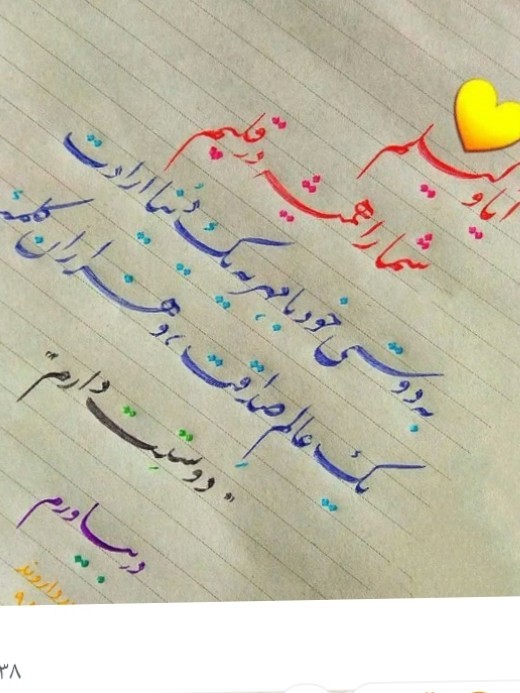 آیا وکیلم
شما را همیشه در قلبم
به دوستی خود با مهریه یک دُنیا ارادت
یک عالم صداقت، و هزاران کلمهٔ
"دوستَت دارم"
در بیاورم
۳۸